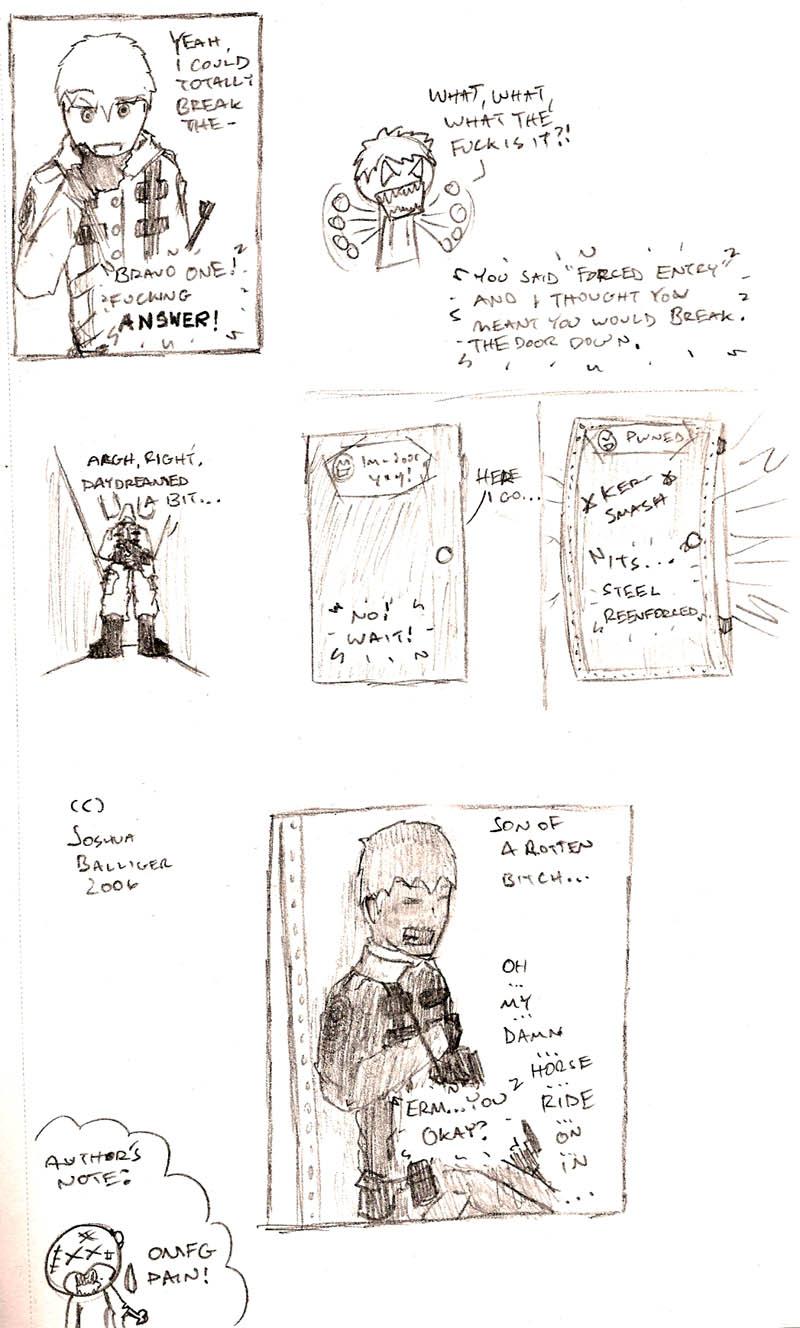 YEAH,
I COULD
TOTALLY
BREAK
THE-
BRAVO ONE!
FUCKING
ANSWER!
WHAT, WHAT,
WHAT THE
FUCK IS IT?!
YOU SAID "FORCED ENTRY"
AND I THOUGHT YOU
MEANT YOU WOULD BREAK
THE DOOR DOWN.
ARGH, RIGHT,
DAYDREAMED
A BIT...
Im a door
yay!
NO!
WAIT!
HERE
I GO...
PWNED
*KER- *
SMASH
ITS...
STEEL
REENFORCED
(C)
JOSHUA
BALLIGER
2006
SON OF
A ROTTEN
BITCH...
OH
...
MY
...
DAMN
...
HORSE
...
RIDE
...
ON
...
IN
...
ERM...YOU
OKAY?
AUTHOR'S
NOTE:
OMFG
PAIN!